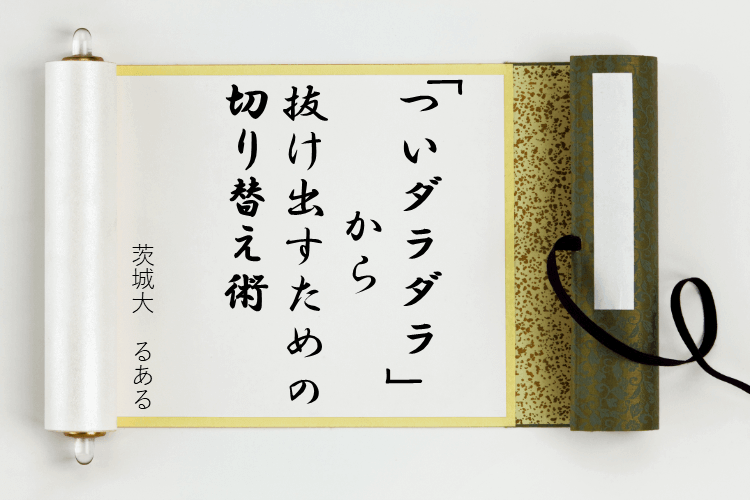 「ついダラダラ」
から
抜け出すための
切り替え術
茨城大　るある